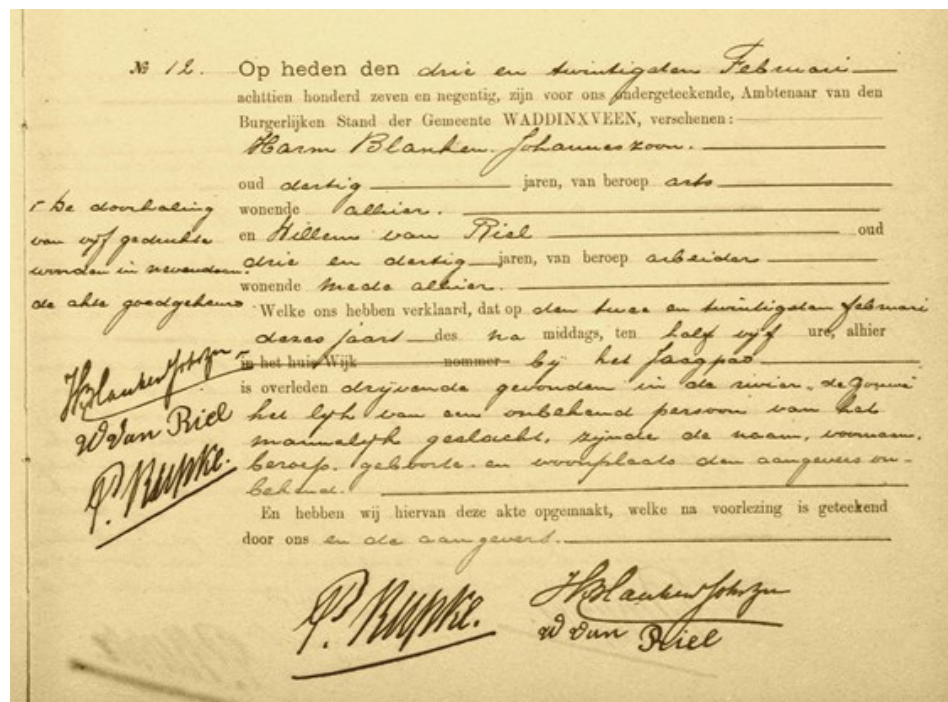 № 12. Op heden den drie en twintigsten Februari
achttien honderd zeven en negentig, zijn voor ons ondergeteekende, Ambtenaar van den
Burgerlijken Stand der Gemeente WADDINXVEEN, verschenen:
Harm Blanken Johanneszoon.
oud dertig jaren, van beroep arts
wonende alhier.
en Willem van Riel oud
drie en dertig jaren, van beroep arbeider
wonende mede alhier.
Welke ons hebben verklaard, dat op den twee en twintigsten februari
dezes jaars des na middags, ten half vijf ure, alhier
in het huis Wijk nommer bij het Jaagpad
is overleden drijvende gevonden in de rivier de Gouwe
het lijk van een onbekend persoon van het
mannelijk geslacht, zijnde de naam, voornaam,
beroep, geboorte en woonplaats den aangevers on-
bekend.
En hebben wij hiervan deze akte opgemaakt, welke na voorlezing is geteekend
door ons en de aangevers.
De doorhaling
van vijf gedrukte
woorden in nevenstaan-
de akte goedgekeurd
HBlanken Johszn
W van Riel
P. Rupke.
P. Rupke.
HBlanken Johszn
W van Riel